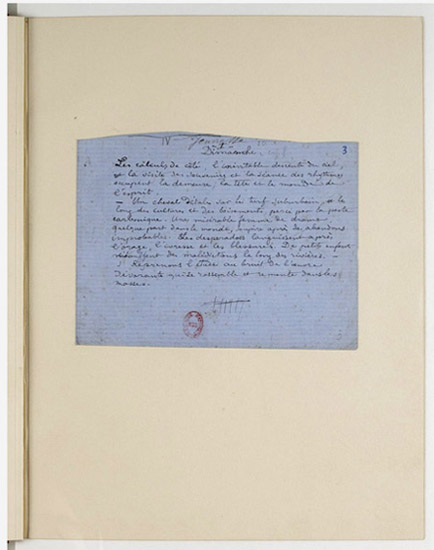 IV Jeunesse
3
I
Dimanche
Les calculs de côté, l'inévitable descente du ciel,
et la visite des souvenirs et la séance des rhythmes
occupent la demeure, la tête et le monde de
l'esprit.
— Un cheval détale sur le turf suburbain, et le
long des cultures et des boisements, percé par la peste
carbonique. Une misérable femme de drame,
quelque part dans le monde, soupire après des abandons
improbables. Les desperadoes languissent après
l'orage, l'ivresse et les blessures. De petits enfants
étouffent des malédictions le long des rivières. —
Reprenons l'étude au bruit de l'œuvre
dévorante qui se rassemble et remonte dans les
masses.